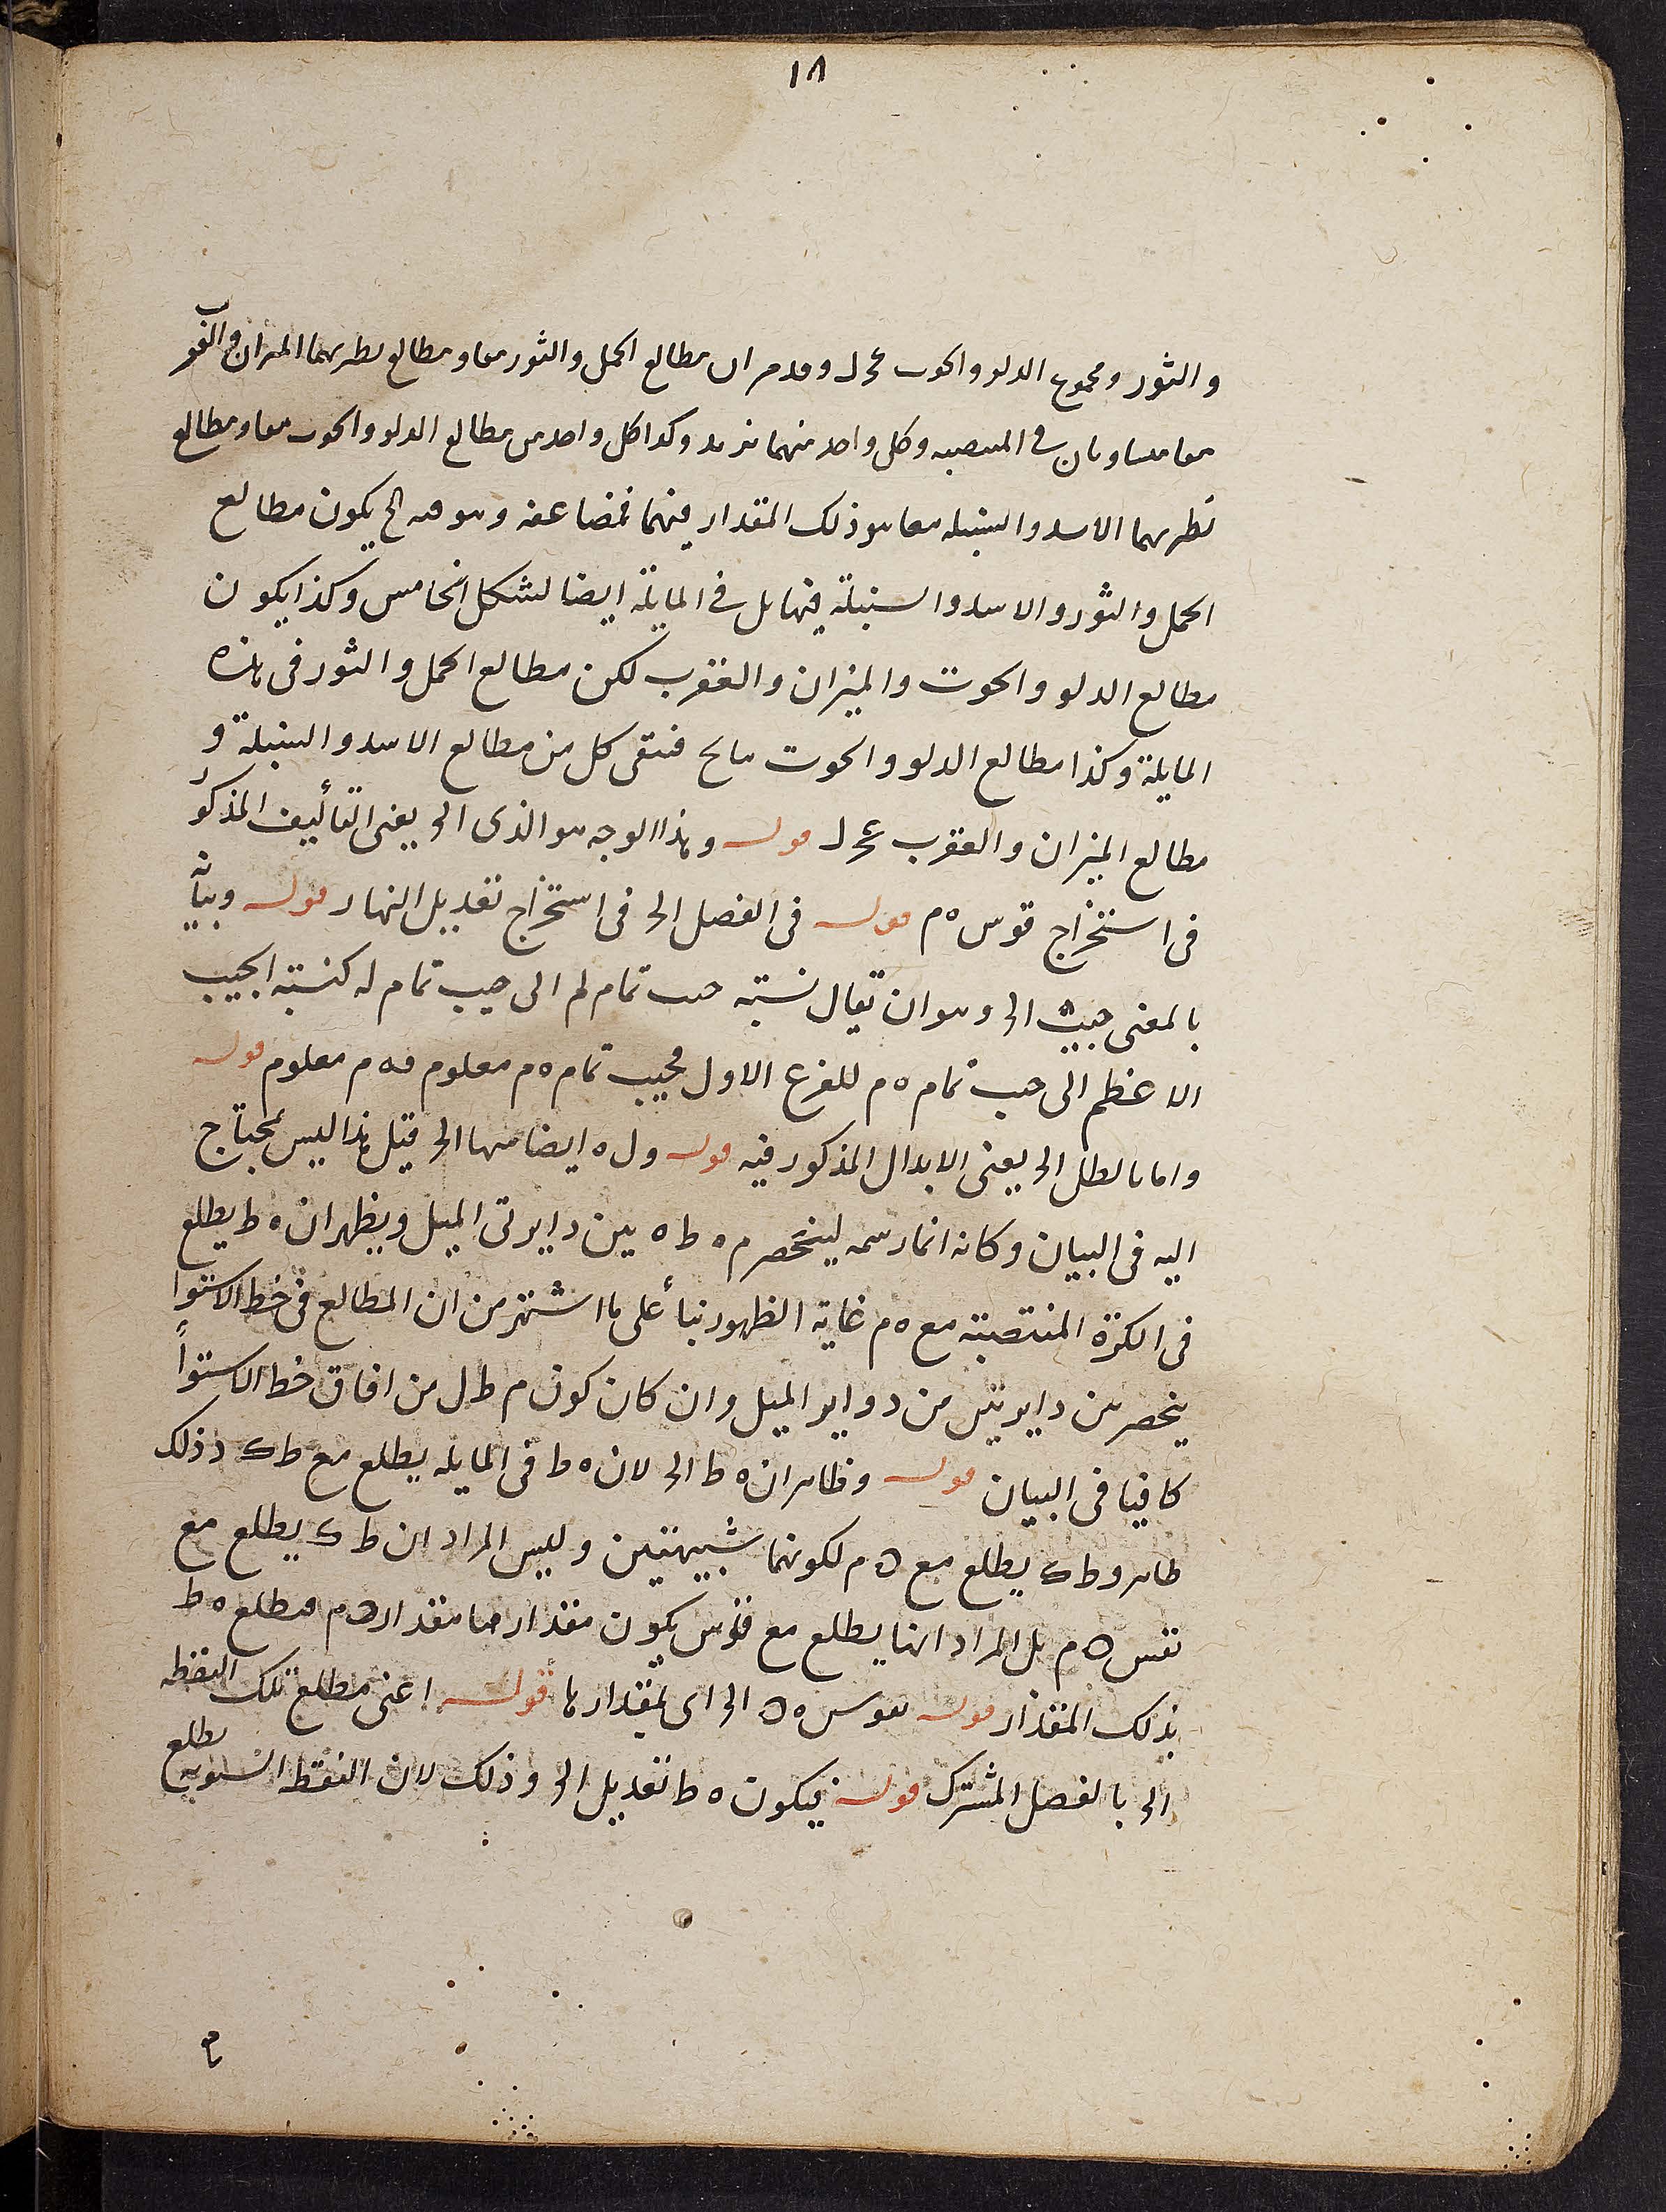 ١٨
والثور ومجموع الدلو والحوت عحرل وقدمر ان مطالع الحمل والثور معا ومطالع نظيريهما الميزان والعقرب
معا متساويان في المنتصبه وكل واحد منهما نر ند وكذا كل واحد من مطالع الدلو والحوت معا ومطالع
نظيريهما الاسد والسنبله معا هو ذلك المقدار فيهما فمضاعفه وهو قىه لح يكون مطالع
الحمل والثور والاسد والسنبلة فيها بل في المايلة ايضا لشكل الخامس وكذا يكون
مطالع الدلو والحوت والميزان والعقرب لكن مطالع الحمل والثور فى هذه
المايلة وكذا مطالع الدلو والحوت ما لح فبقى كل من مطالع الاسد والسنبلة و
مطالع الميزان والعقرب عحرل قوله وهذا الوجه هو الذى الخ يعنى التأليف المذكور
فى استخراج قوس ه م قوله فى الفصل الخ فى استخراج تعديل النهار قوله وبيانه
بالمغنى حيث الخ وهو ان يقال نسبة جيب تمام لم الى جيب تمام له كنسبة الجيب
الاعظم الى جيب تمام ه م للفرع الاول فجيب تمام ه م معلوم فه م معلوم قوله
واما بالظل الخ يعنى الابدال المذكور فيه قوله ول ه ايضا منها الخ قيل هذا ليس بمحتاج
اليه فى البيان وكانه انما رسمه لينحصر م ه ط ه بين دايرتى الميل ويظهر ان ه ط يطلع
فى الكرة المنتصبة مع ه م غاية الظهور بنأ على ما اشتهر من ان المطالع فى خط الاستوا
ينحصر بين دايرتين من دواير الميل وان كان كون م ط ل من افاق خط الاستوأ
كافيا فى البيان قوله وظاهر ان ه ط الخ لان ه ط فى المايله يطلع مع ط ك وذلك
ظاهر وط ك يطلع مع ه م لكونهما شبيهتين وليس المراد ان ط ك يطلع مع
نفس ه م بل المراد انها يطلع مع قوس يكون مقدارها مقدار ه م فيطلع ه ط
بذلك المقدار قوله بقوس ه ه الخ اى بمقدارها قوله اعنى مطلع تلك النقطه
الخ بالفصل المشترك قوله فيكون ه ط تعديل الخ وذلك لان النقطه السنويه يطلع